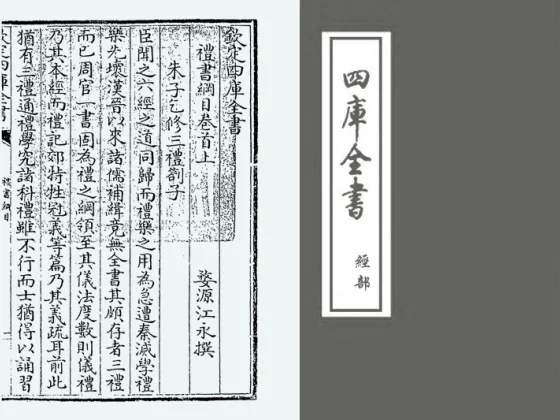 四庫全書
經部
欽定四庫全書
禮書綱目卷首上 婺源江永撰
朱子乞修三禮劄子
臣聞之六經之道同歸而禮樂之用為急遭秦滅學禮
樂先壞漢晉以來諸儒補緝竟無全書其頗存者三禮
而已周官一書固為禮之綱領至其儀法度數則儀禮
乃其本經而禮記郊特牲冠義等篇乃其義疏耳前此
猶有三禮通禮學究諸科禮雖不行而士猶得以誦習
欽定四庫全書
禮書綱目